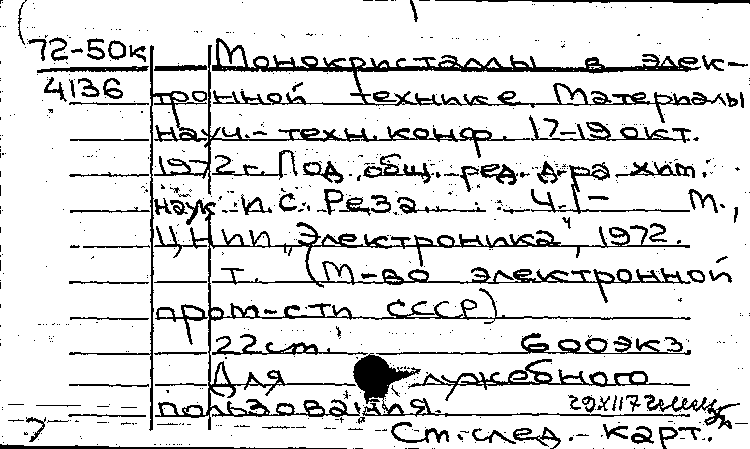 72-50к Монокристаллы в элек-
4136 тронной технике. Материалы
науч.-техн. конф. 17-19 окт.
1972 г. Под общ. ред. д-ра хим.
наук И.С. Реза. Ч.1- М.,
ЦНИИ „Электроника", 1972.
т. (М-во электронной
пром-сти СССР).
22 см. 600 экз.
Для служебного
пользования.
Ст. след. карт.